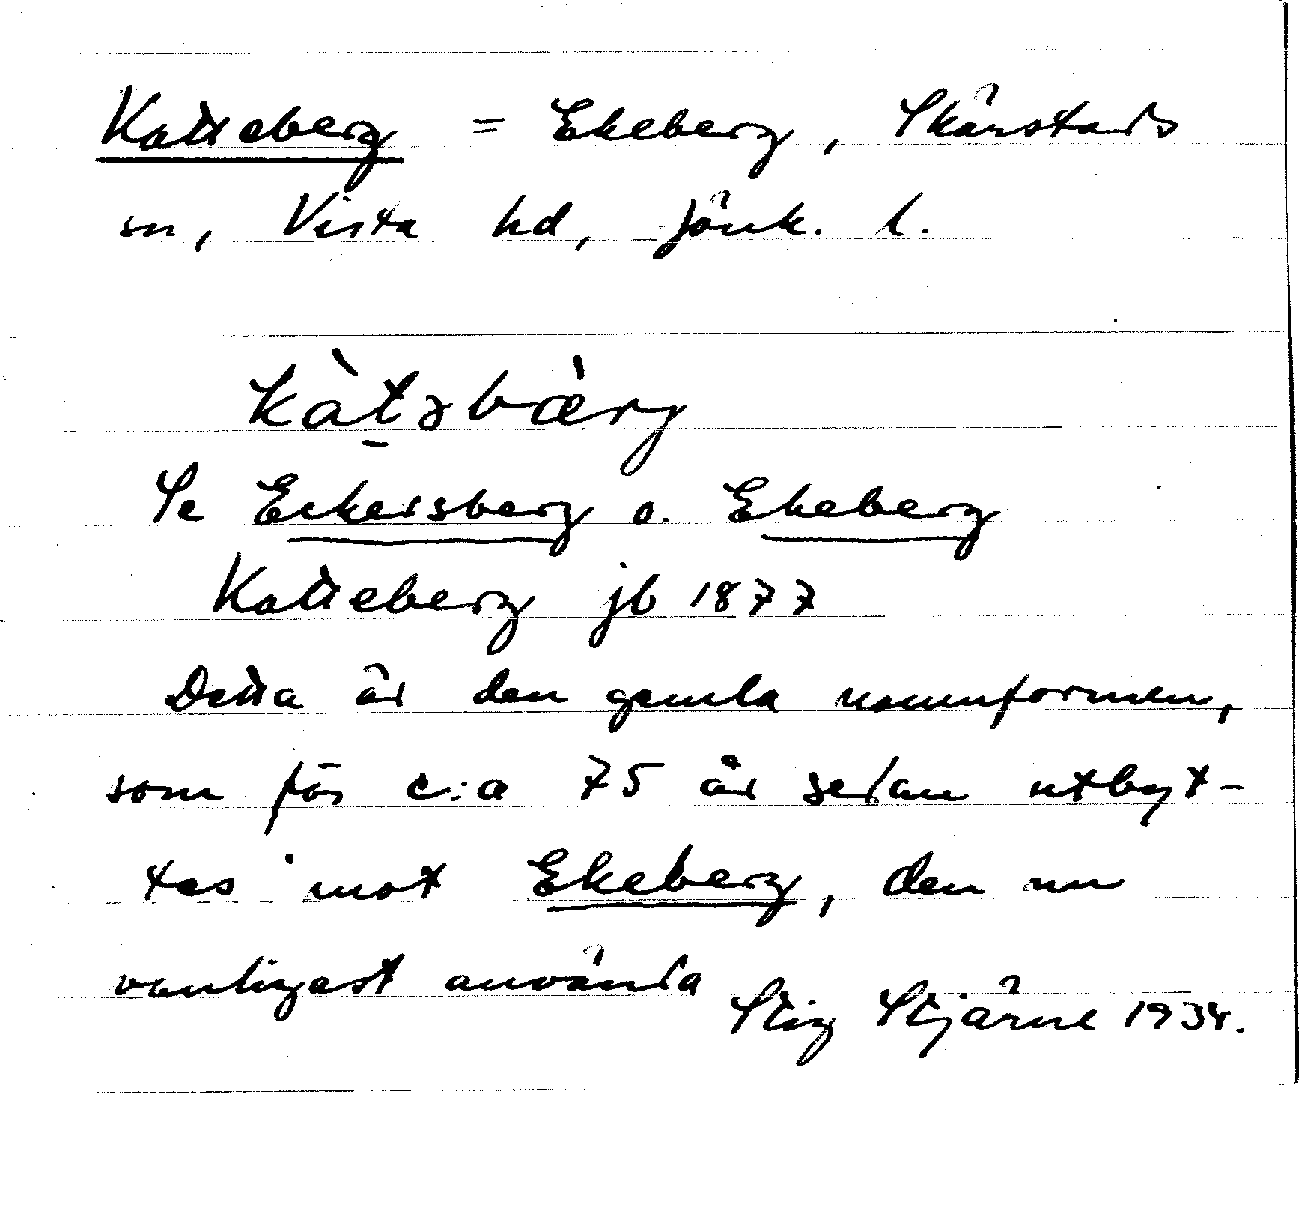 Katteberg = Ekeberg, Skärstads
sn, Vista hd, Jönk. l.
kàt̠əbæ̀rg
Se Eckersberg o. Ekeberg
Katteberg jb 1877
Detta är den gamla namnformen,
som för c:a 75 år sedan utbyt-
tes mot Ekeberg, den nu
vanligast använda
Stig Stjärne 1934.